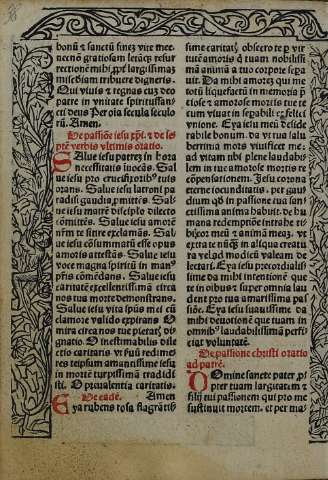 bonū & sanctū finez vite mee:
necnō gratiosam letāqz resur
rectionē mihi xp̄e largissimaz
misedíam tribuere digneris.
Qui viuis & regnas cuz deo
patre in vnitate spiritussan̄
cti deus Per oīa secula seculo
rū. Amen.
De passiōe iesu xp̄i. & de se
ptē verbis vltimis oratio.
SAlue iesu patrez in hora
necessitatis inuocās. Sal
ue iesu pro crucifixorib⁹ tuis
orans. Salue iesu latroni pa
radisi gaudia ꝓmittēs. Sal
ue iesu matrē discipulo dilecto
cōmittēs. Salue iesu amorē
nr̄m te sitire exclamās. Salue
iesu cōsummatū esse opus
amoris attestās. Salue iesu
voce magna spiritū in man⁹
pr̄is comēdans. Salue iesu
caritatē excellentissimā circa
nos tua morte demonstrans.
Salue iesu vita ip̄ius mei cū
clamore valido expirans. O
mira circa nos tue pietat⁊ di
gnatio. O inestimabilis dile
ctio caritatis. vt suū redime
res teipsum amantissime iesu
in mortē turpissimā tradidi
sti. O preualentia caritatis.
De eadē. Amen
EYa rubens rosa flagrātis
sime caritat⁊. obsecro te ꝑ vir
tutē amoris q̄ tuam nobilissi
mā animā a tuo corpore sepa
uit. Da mihi amorez qui me
totū liquefactū in memoria p̄
tiose & amorose mortis tue te
cum viuat in sepabili & felici
vnione. Eya iesu meū deside
rabile bonum. da vt tua salu
berrima mors viuificet me:
ad vitam nb̄i plene laudabi
lem in tua amicitia mortis re
cōpensationem. Iesu corona
eterne iocunditatis. per gau
dium qd̄ in passione tua san
ctissima anima habuit. de hu
mana redemptiōe intrahe ti
bi cor meū & animā meaz. vt
extra te nūq̄ in aliqua creatu
ra velad modicū valeam de
lectari. Eya iesu precordialis
sime da mihi intentionē que
te in oibus & super omnia lau
dent pro tua amarissima pas
siōe. Eya iesu suauissime da
mihi deuotionē que tuam in
omnib⁹ laudabilissimā perfi
ciat voluntatē.
De passione christi oratio
ad patrē.
DOmine sancte pater ꝓ
pter tuam largitatem &
filij tui passionem qui pro me
sustinuit mortem. et per ma⸗